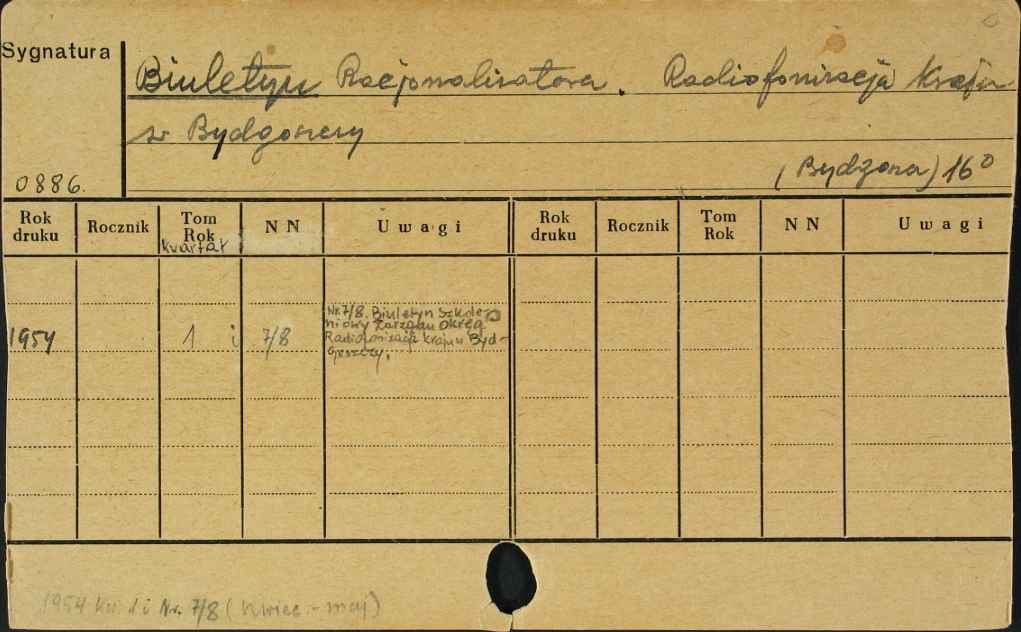 Sygnatura
Biuletyn Racjonalizatora. Radiofonizacja Kraju
w Bydgoszczy
(Bydgoszcz) 16°
0886.
Rok druku Rocznik Tom Rok kwartał NN Uwagi Rok druku Rocznik Tom Rok NN Uwagi
Nr 7/8. Biuletyn Szkole-
niowy Zarządu Okręg
1954 1 i 7/8 Radiofonizacja kraju w Byd-
goszczy.
1954 Kw. 1 i Nr. 7/8 (kwiec - maj)